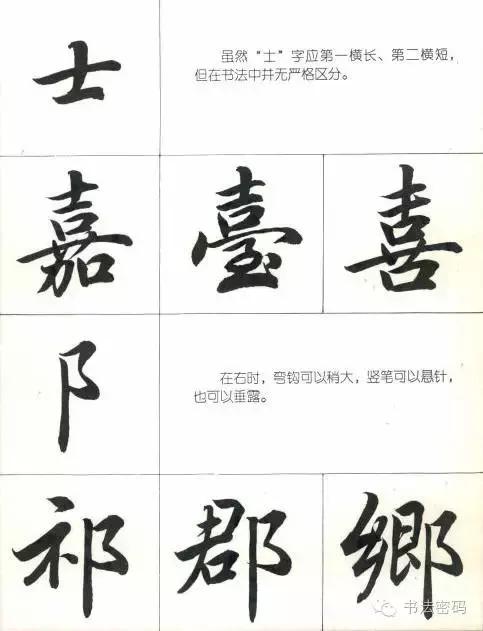 士
虽然“士”字应第一横长、第二横短，
但在书法中并无严格区分。
嘉 臺 喜
阝
在右时，弯钩可以稍大，竖笔可以悬针，
也可以垂露。
祁 郡 鄉
书法密码